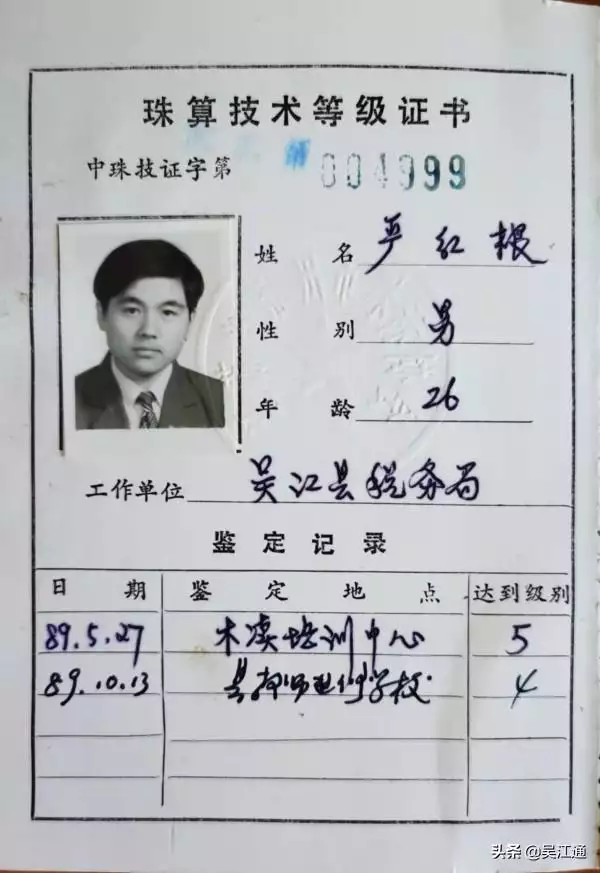 珠算技术等级证书
中珠技证字第 004999
姓 名 严红根
性 别 男
年 龄 26
工作单位 吴江县税务局
鉴定记录
日 期 鉴 定 地 点 达到级别
89.5.27 木渎培训中心 5
89.10.13 县教师进修学校 4
头条 @吴江通